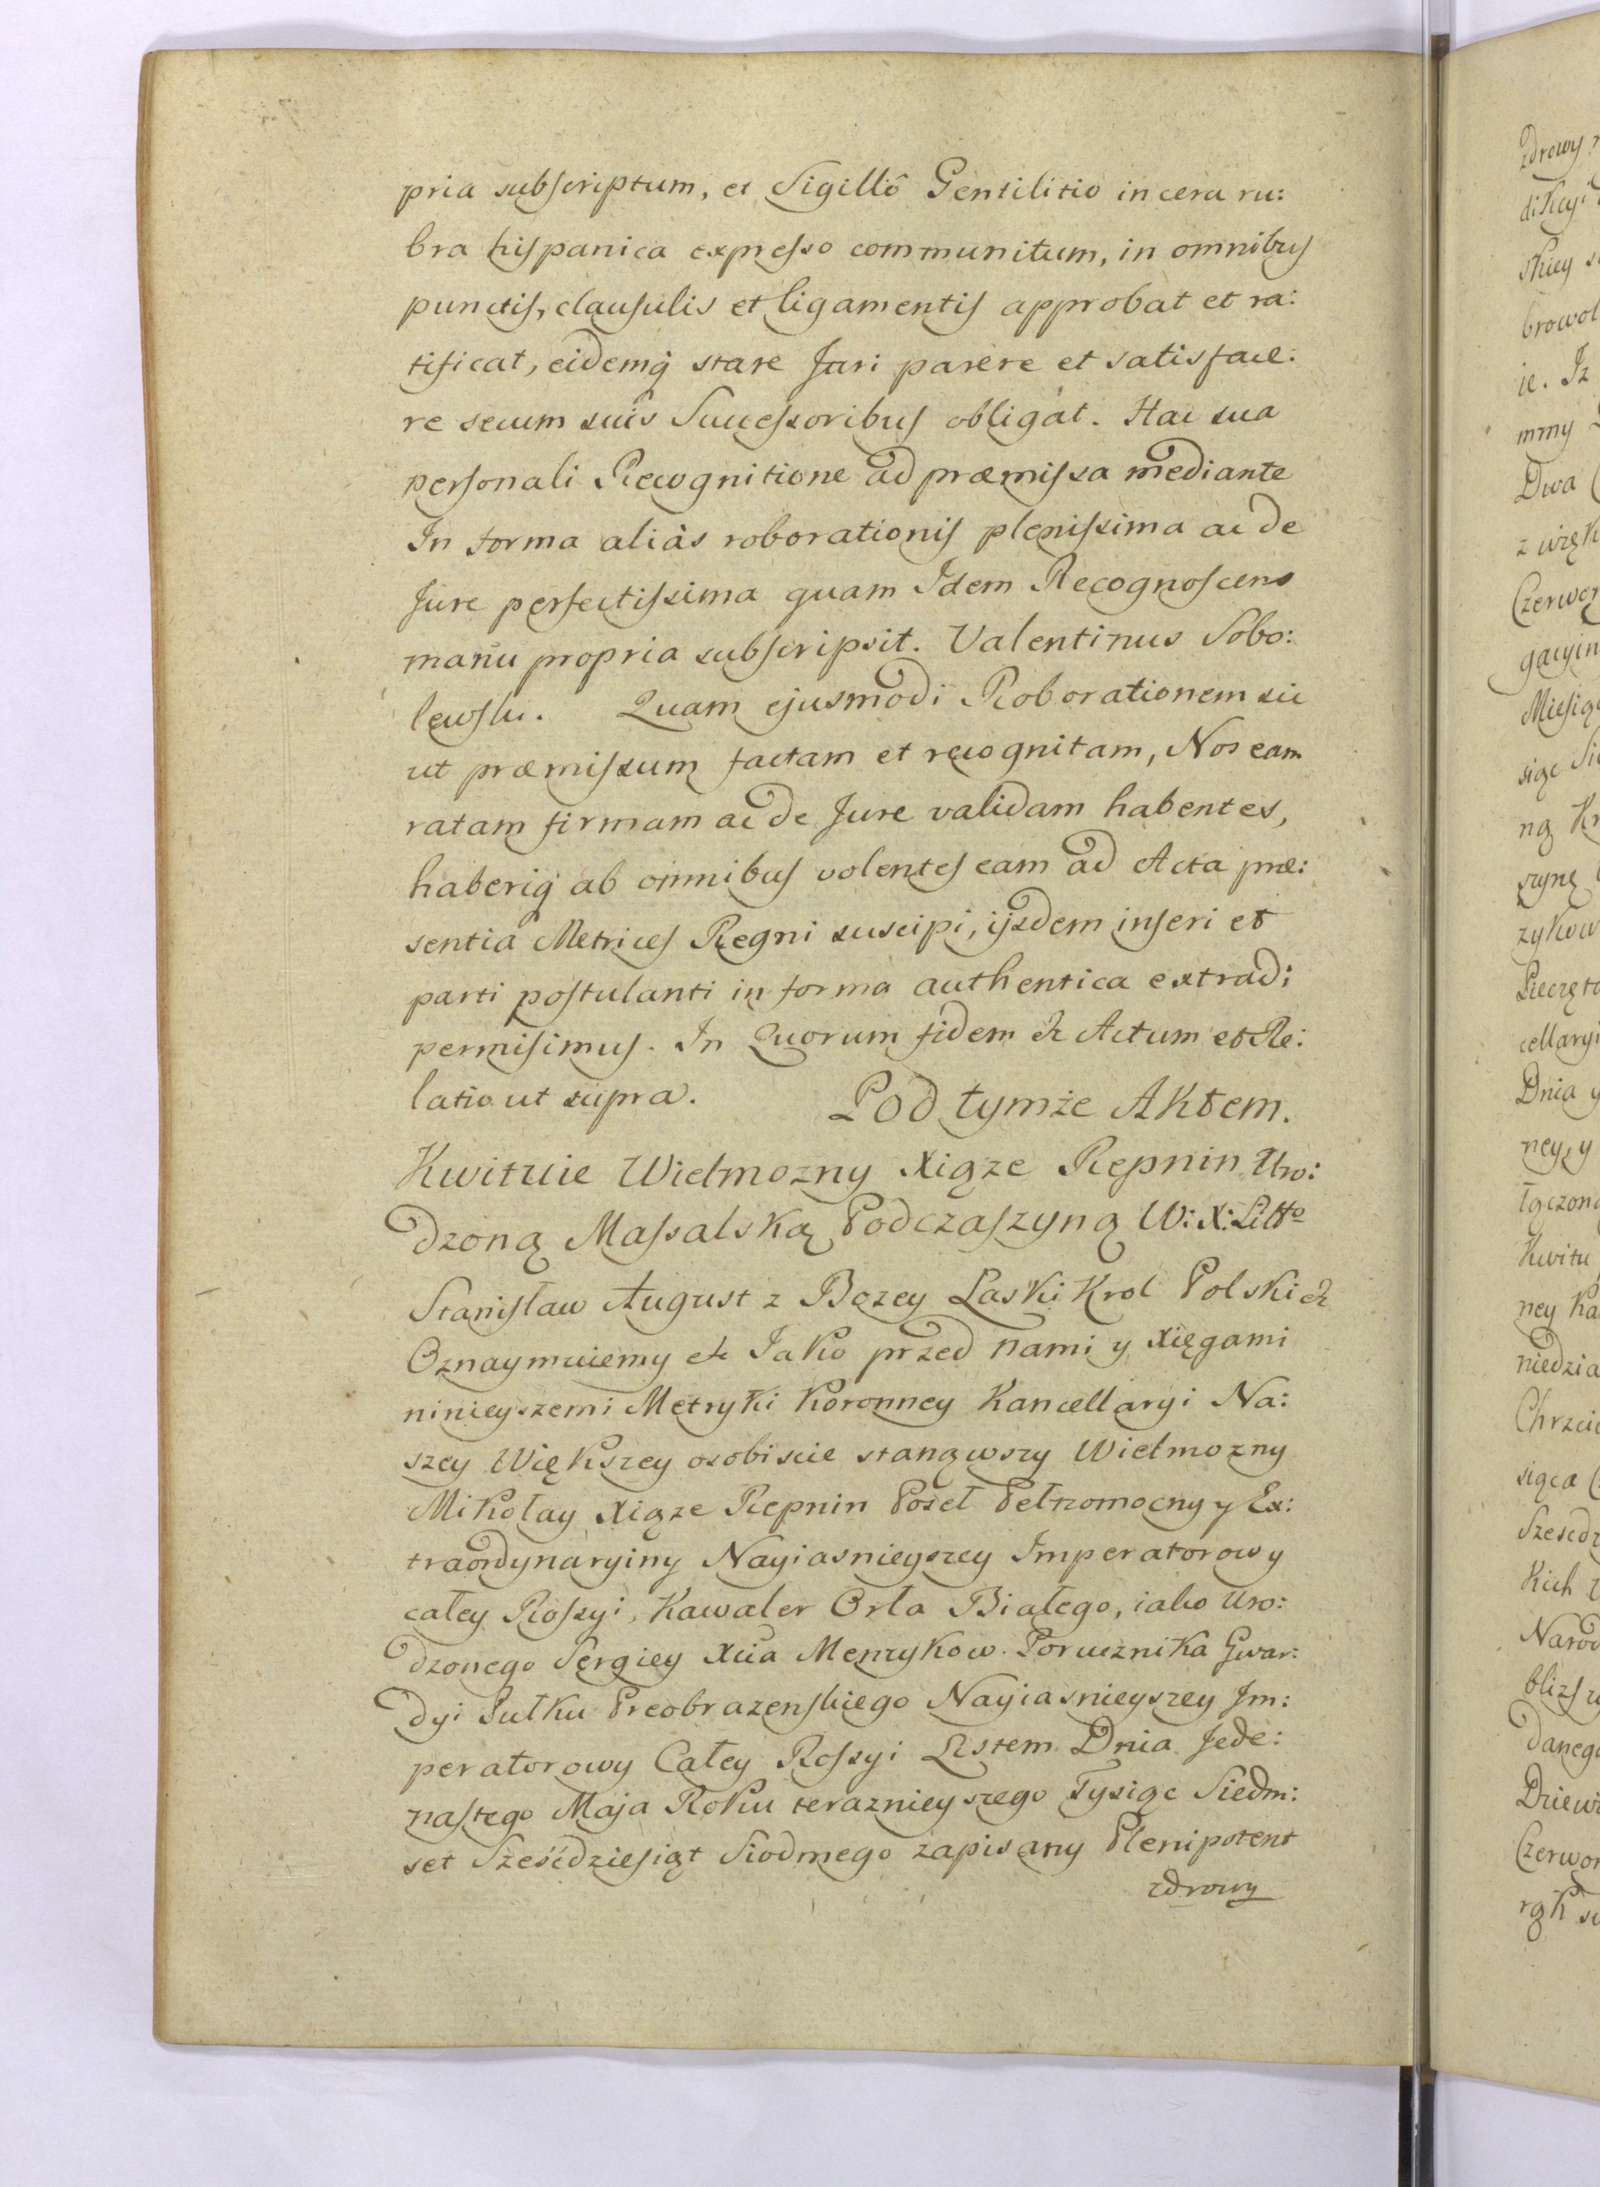 pria subscriptum, et Sigillô Gentilitio in cera ru:
bra hispanica expresso communitum, in omnibus
punctis, clausulis et ligamentis approbat et ra:
tificat, eidemq̃ stare Juri parere et satisface:
re secum suis Successoribus obligat. Hac sua
personali Recognitione ad præmissa mediante
In forma aliàs roborationis plenissima ac de
Jure perfectissima quam Idem Recognoscens
manu propria subscripsit. Valentinus Sobo:
lewski. Quam ejusmodi Roborationem sic
ut præmissum factam et recognitam, Nos eam
ratam firmam ac de Jure validam habentes,
haberiq̃ ab omnibus volentes eam ad Acta præ:
sentia Metrices Regni suscipi, ijsdem inseri et
parti postulanti in forma authentica extradi
permisimus. In Quorum fidem &c Actum et Re:
latio ut supra. Pod tymże Aktem.
Kwituie Wielmozny Xiąze Repnin Uro:
dzoną Massalską Podczaszyną W: X: Litto
Stanisław August z Bozey Łaski Krol Polski &c
Oznaymuiemy &c Jako przed nami y xięgami
ninieyszemi Metryki Koronney Kancellaryi Na:
szey Większey osobiscie stanąwszy Wielmozny
Mikołay Xiąze Repnin Poseł Pełnomocny y Ex:
traordynaryiny Nayiasnieyszey Imperatorowy
całey Rossyi, Kawaler Orła Białego, iako Uro:
dzonego Sergiey Xcia Menzykow Porucznika Gwar:
dyi Pułku Preobrazenskiego Nayiasnieyszey Im:
peratorowy Całey Rossyi Listem Dnia Jede:
nastego Maja Roku teraznieyszego Tysiąc Siedm:
set Sześćdziesiąt Siodmego zapisany Plenipotent
zdrowy